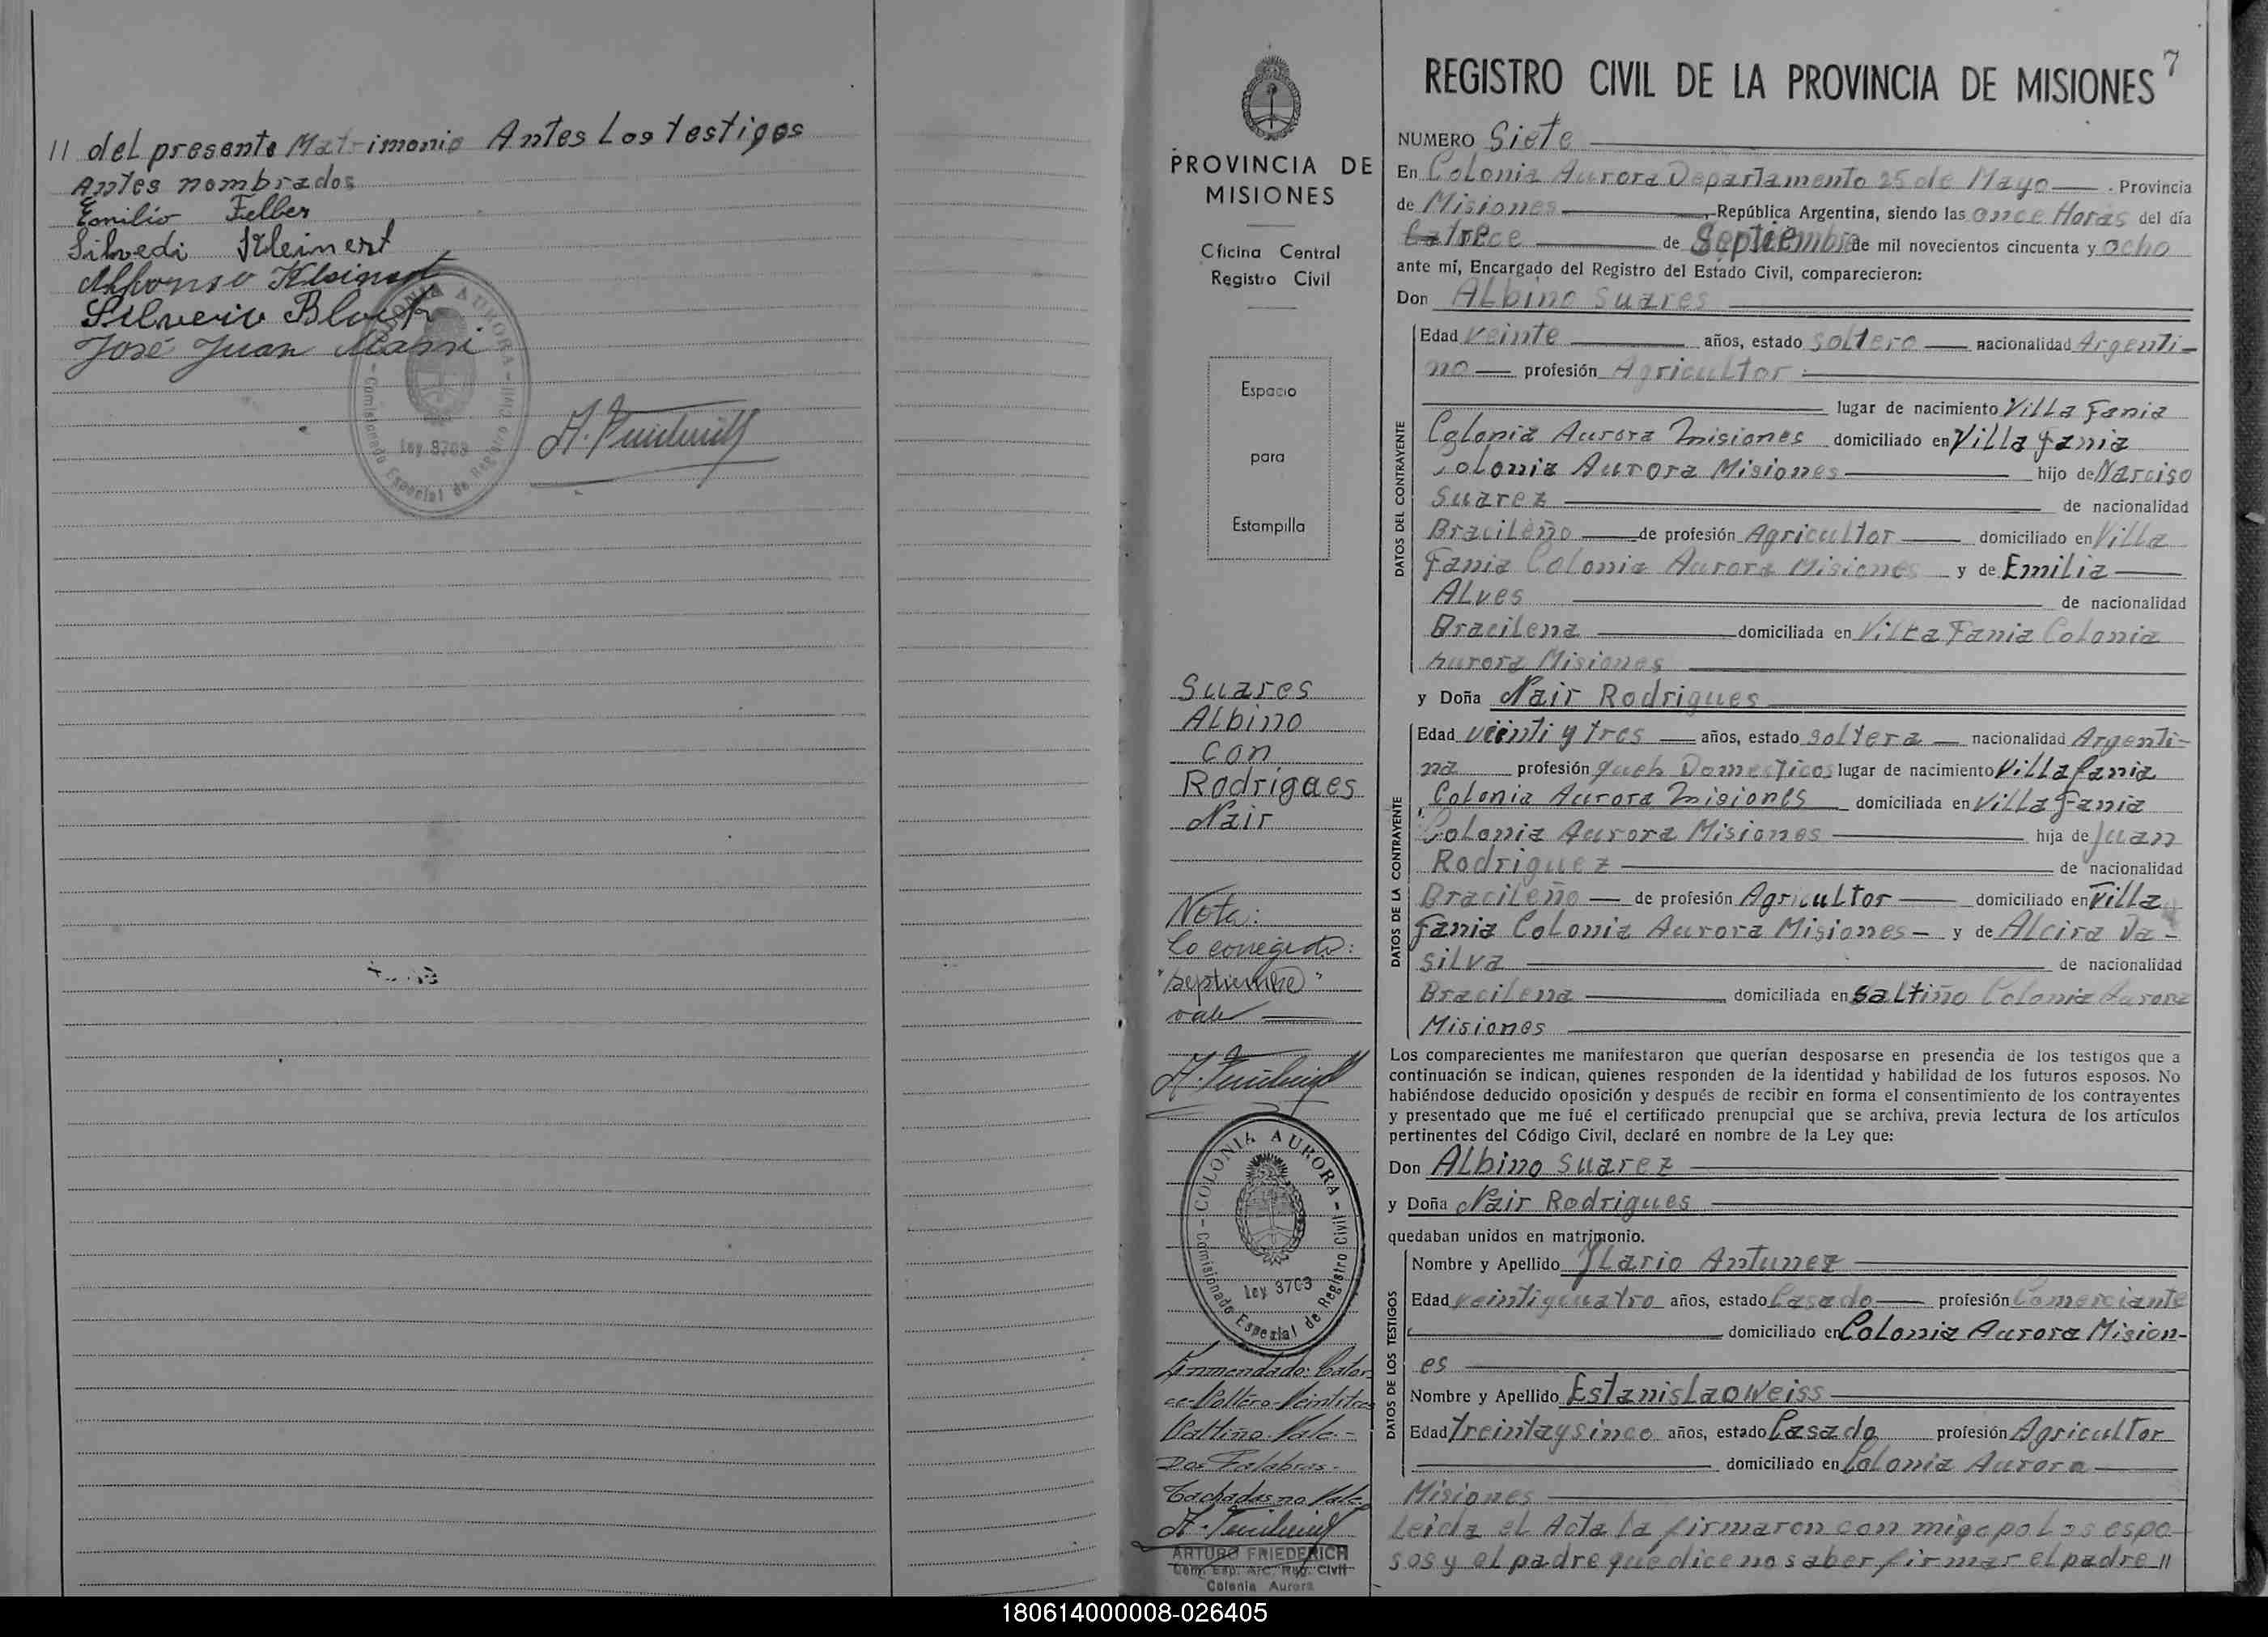 11 del presente Matrimonio Antes Los testigos
Antes nombrados
Emilio Felber
Silvedi Kleinert
Alfonso Kleinert
Silverio
José Juan
COLONIA AURORA
Comisionado Especial de Registro Civil
Ley 3703
PROVINCIA DE
MISIONES
Oficina Central
Registro Civil
Espacio
para
Estampilla
Suares
Albino
con
Rodrigues
Nair
Nota:
Lo corregido:
"septiembre"
vale
COLONIA AURORA
Comisionado Especial de Registro Civil
Ley 3703
Enmendado: Cator-
ce-Soltero-Veintitres
Saltiño. Vale.-
Dos Palabras-
Tachadas no Vale
ARTURO FRIEDERICH
Com. Esp. Arc. Reg. Civil
Colonia Aurora
7
REGISTRO CIVIL DE LA PROVINCIA DE MISIONES
NUMERO Siete
En Colonia Aurora Departamento 25 de Mayo . Provincia
de Misiones , República Argentina, siendo las once Horas del día
Catorce de Septiembre de mil novecientos cincuenta y ocho
ante mí, Encargado del Registro del Estado Civil, comparecieron:
Don Albino Suares
DATOS DEL CONTRAYENTE
Edad veinte años, estado soltero nacionalidad Argenti-
no profesión Agricultor
lugar de nacimiento Villa Fania
Colonia Aurora Misiones domiciliado en Villa Fania
Colonia Aurora Misiones hijo de Narciso
Suarez de nacionalidad
Bracileño de profesión Agricultor domiciliado en Villa
Fania Colonia Aurora Misiones y de Emilia
Alves de nacionalidad
Bracilena domiciliada en Villa Fania Colonia
Aurora Misiones
y Doña Nair Rodrigues
DATOS DE LA CONTRAYENTE
Edad veinti y tres años, estado soltera nacionalidad Argenti-
na profesión Domesticos lugar de nacimiento Villa Fania
Colonia Aurora Misiones domiciliada en Villa Fania
Colonia Aurora Misiones hija de Juan
Rodriguez de nacionalidad
Bracileño de profesión Agricultor domiciliado en Villa
Fania Colonia Aurora Misiones - y de Alcira Da-
silva de nacionalidad
Bracilena domiciliada en Saltiño Colonia Aurora
Misiones
Los comparecientes me manifestaron que querían desposarse en presencia de los testigos que a
continuación se indican, quienes responden de la identidad y habilidad de los futuros esposos. No
habiéndose deducido oposición y después de recibir en forma el consentimiento de los contrayentes
y presentado que me fué el certificado prenupcial que se archiva, previa lectura de los artículos
pertinentes del Código Civil, declaré en nombre de la Ley que:
Don Albino Suarez
y Doña Nair Rodrigues
quedaban unidos en matrimonio.
DATOS DE LOS TESTIGOS
Nombre y Apellido Ylario Antunez
Edad veintiquatro años, estado Casado profesión Comerciante
domiciliado en Colonia Aurora Mision-
es
Nombre y Apellido Estanislao Weiss
Edad treintaysinco años, estado Casado profesión Agricultor
domiciliado en Colonia Aurora
Misiones
Leida el Acta la firmaron con migo po Los espo-
sos y el padre que dice no saber firmar el padre 11
180614000008-026405